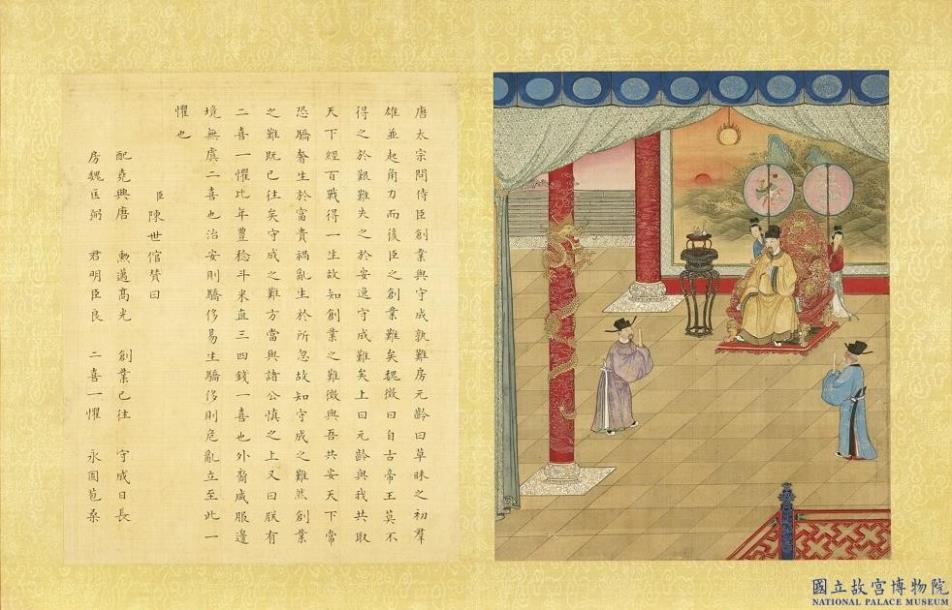 唐太宗問侍臣創業與守成孰難房元齡曰草昧之初羣
雄並起角力而後臣之創業難矣魏徵曰自古帝王莫不
得之於艱難失之於安逸守成難矣上曰元齡與我共取
天下經百戰得一生故知創業之難徵與吾共安天下常
恐驕奢生於富貴禍亂生於所忽故知守成之難然創業
之難既已往矣守成之難方當與諸公慎之上又曰朕有
二喜一懼比年豐稔斗米直三四錢一喜也外裔咸服邊
境無虞二喜也治安則驕侈易生驕侈則危亂立至此一
懼也
臣陳世倌贊曰
配堯興唐 勳邁高光 創業已往 守成日長
房魏匡弼 君明臣良 二喜一懼 永固苞桑
國立故宮博物院
NATIONAL PALACE MUSEUM